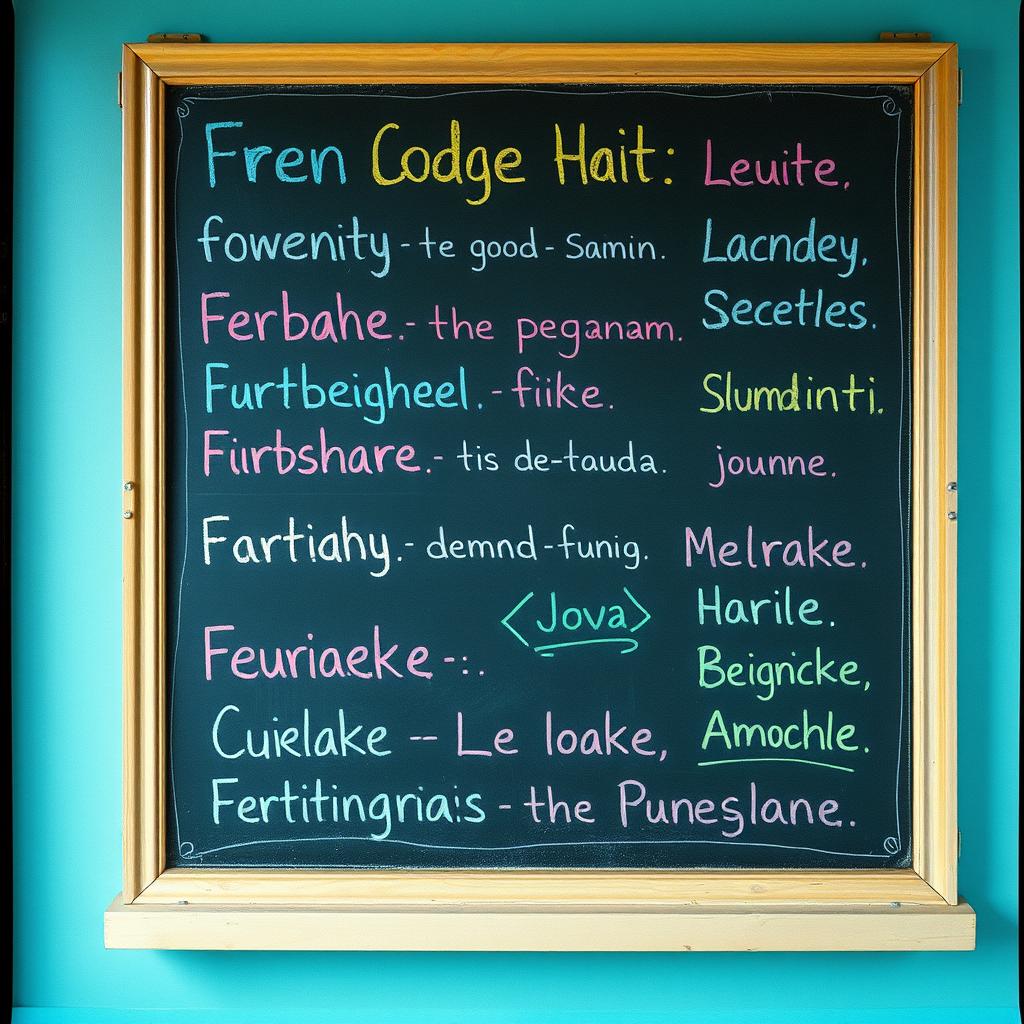 Fren Codge Hait: Leuite.
fowenity - te good - Samin. Lacndey,
Ferbahe.- the peganam. Secetles.
Furtbeigheel. - fiike. Slumdinti.
Fiirbshare.- tis de-tauda. jounne.
Fartiahy.- demnd -funig. Melrake.
<Jova> Harile.
Feuriaeke -:. Beignicke,
Cuielake -- Le loake, Amochle.
Fertitingria:s - the Puneslane.